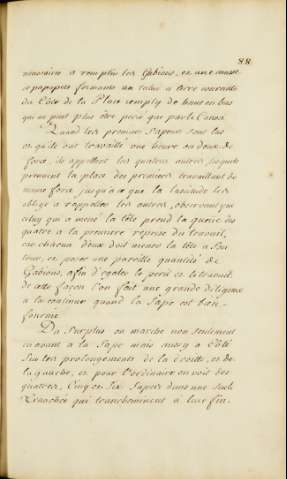 88
necessaire a remplir les Gabions, et une masse
de parapets formante un talus a terre courante
du Côté de la Place remply de haut en bas
qui ne peut plus être percé que par le Canon.
Quand les premiers Sapeurs sont las
et qu'ils ont travaillé une heure ou deux de
force, ils appellent les quatres autres lesquels
prennent la place des premiers travaillant de
même force jusqu'a ce que la lassitude les
oblige a rappeller les autres, observant que
celuy qui a mené la tête prend la queüe des
quatre a la premiere reprise du travail,
car chacun d'eux doit mener la tête a Son
tour, et poser une pareille quantité de
Gabions, afin d'egaler le peril et le travail.
de cette façon l'on fait une grande diligence
a la continue quand la Sape est bien
fournie.
Du Surplus on marche non seulement
en avant a la Sape mais aussy a Côté
Sur les prolongements de la droitte, et de
la gauche, et pour l'ordinaire on voit des
quatres, Cinq et Six Sapes dans une seule
Tranchée qui tranchemin[ent] a leur fin.